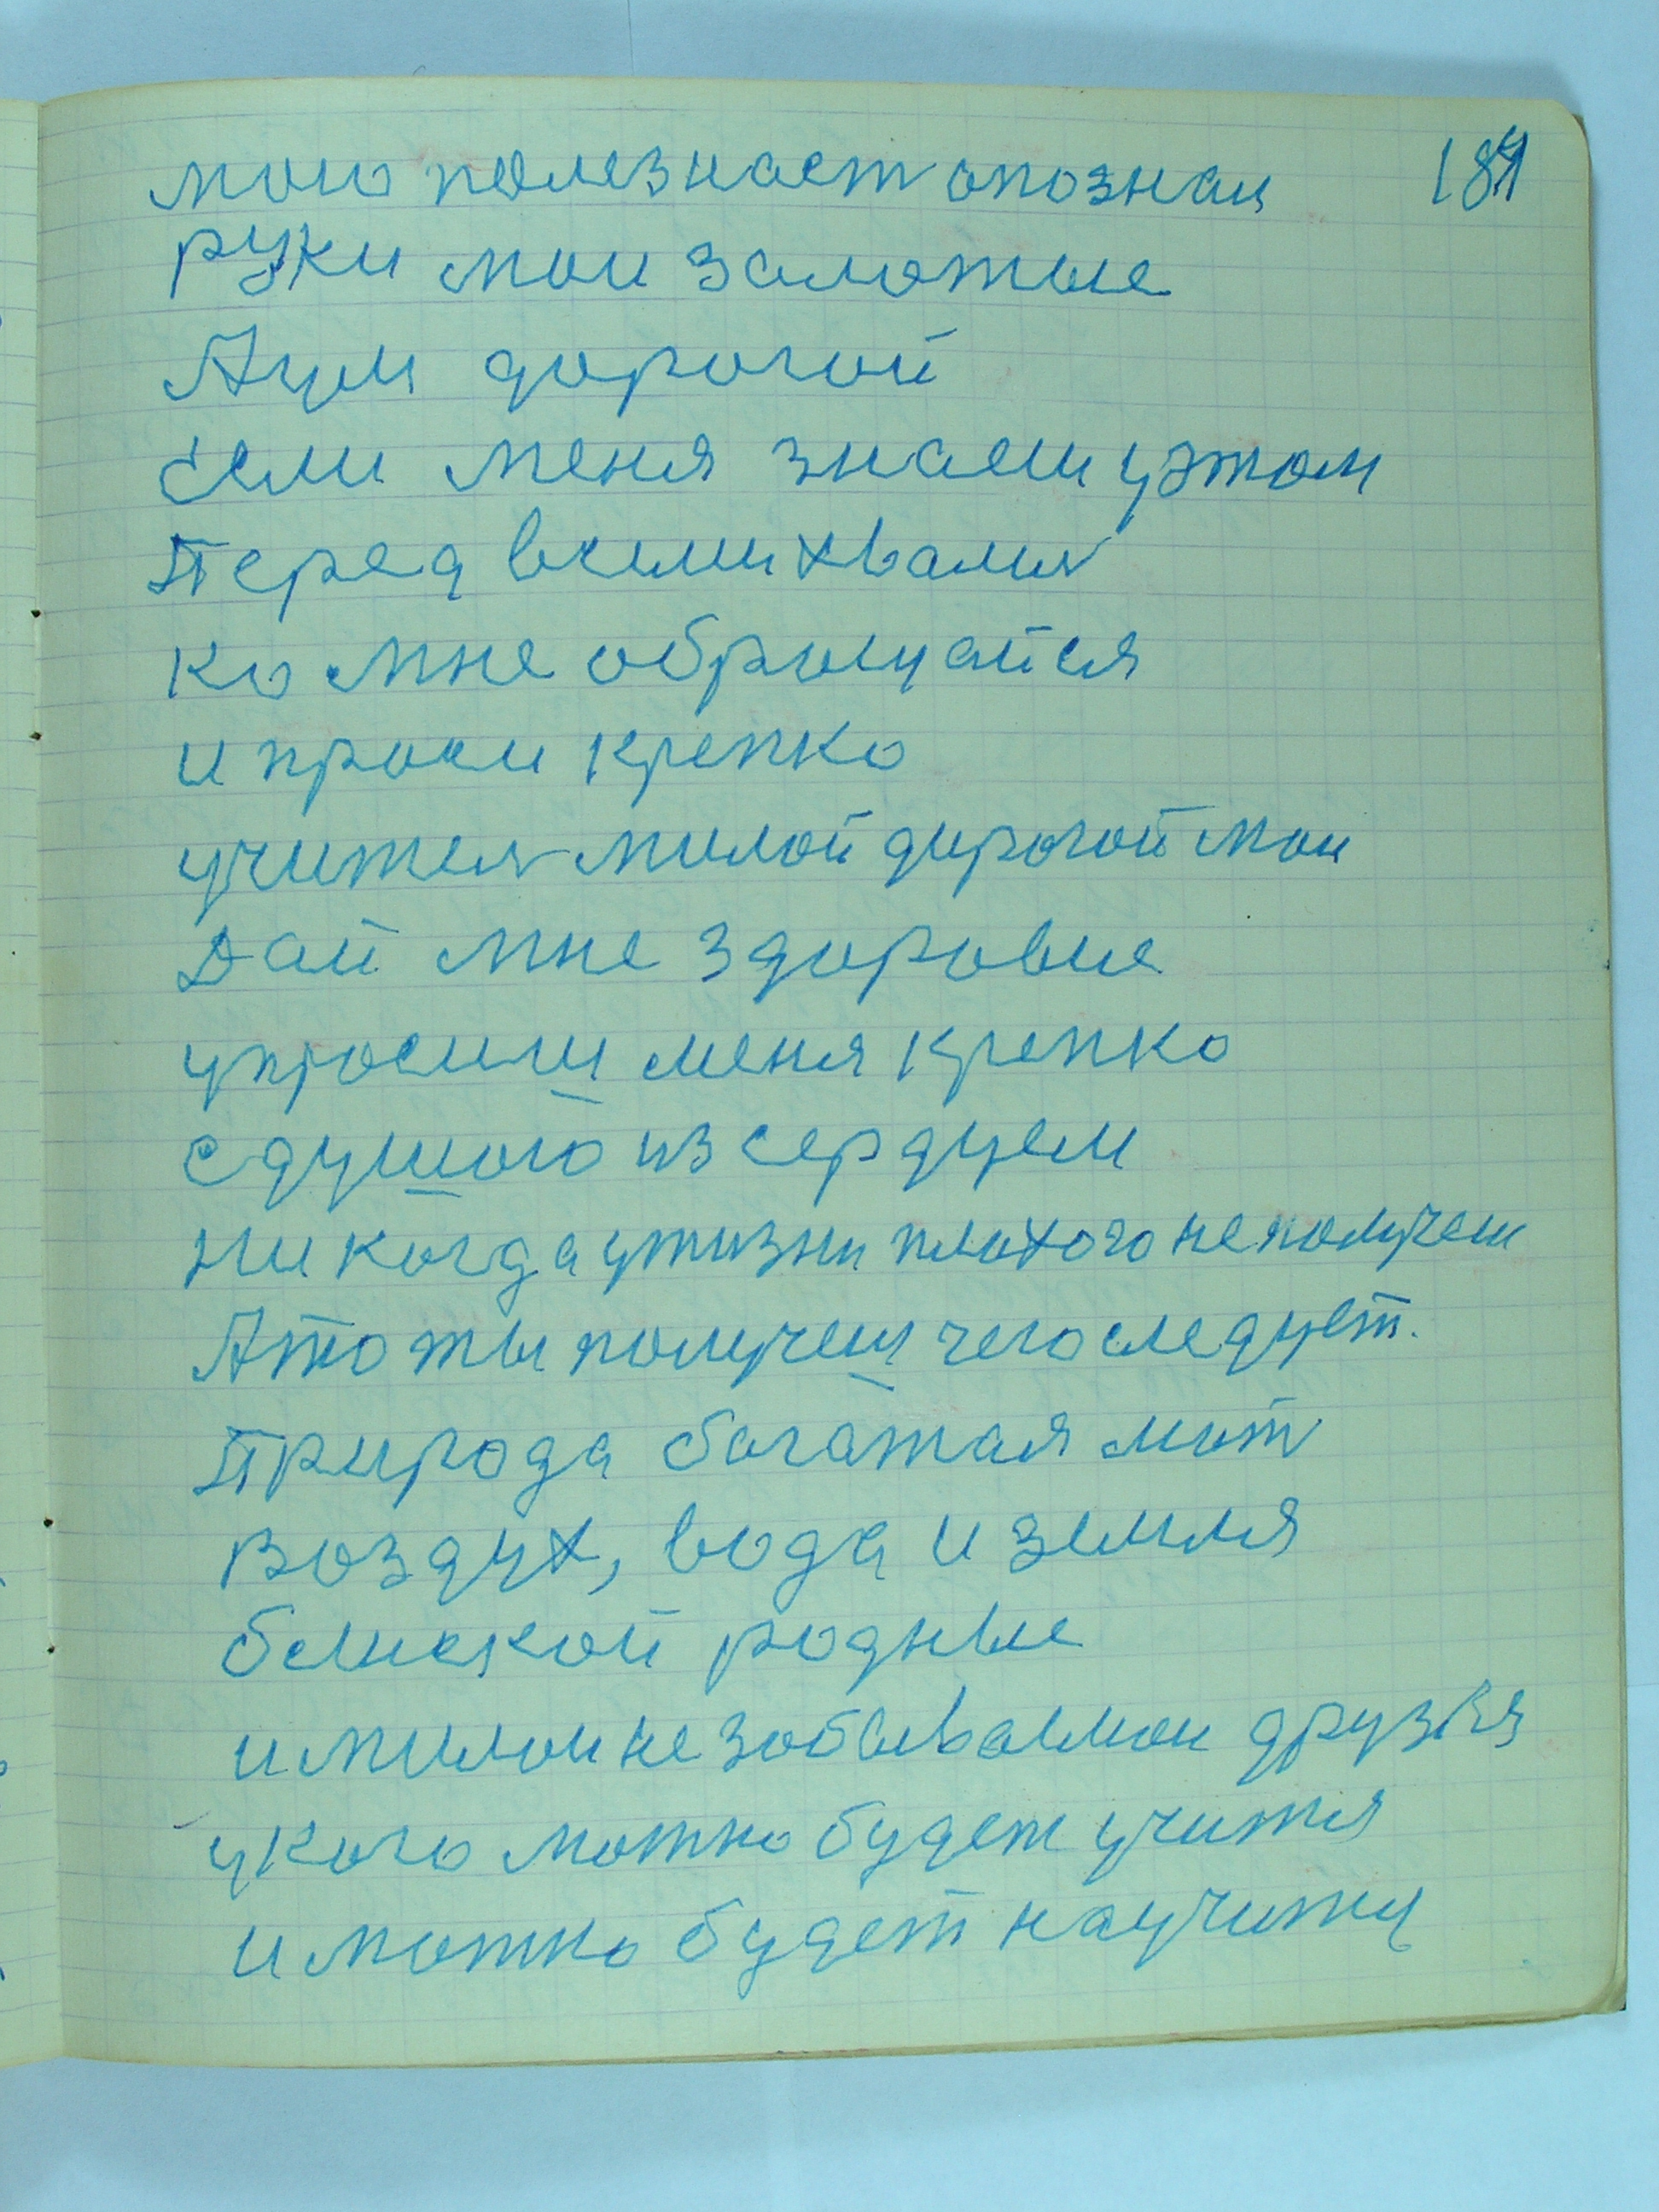 мою полезнаст опознаи 181
руки мои залотые
Аум дорогой
если меня знаеш уэтом
Перед всеми хвались
ко мне обращайся
и проси крепко
учитель милой дорогой мои
Дай мне здоровие
упросиш меня крепко
с душою из сердцем
ни когда ужизни плохого не получеш
Ато ты получеш чего следует.
Природа богатая мот
воздух, вода и земля
блиской родные
и милои не забываемои друзья
укого можно будет учится
и можно будет научитц